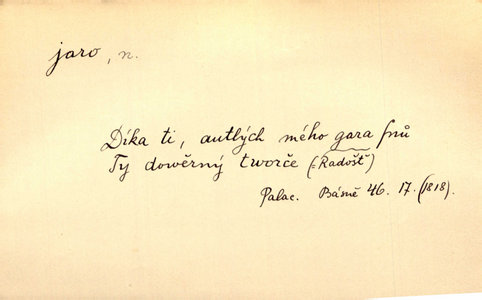 jaro, n.
Díka ti, autlých mého gara snů
Ty dowěrný tworče (: Radošť)
Palac. Básně 46. 17. (1818).